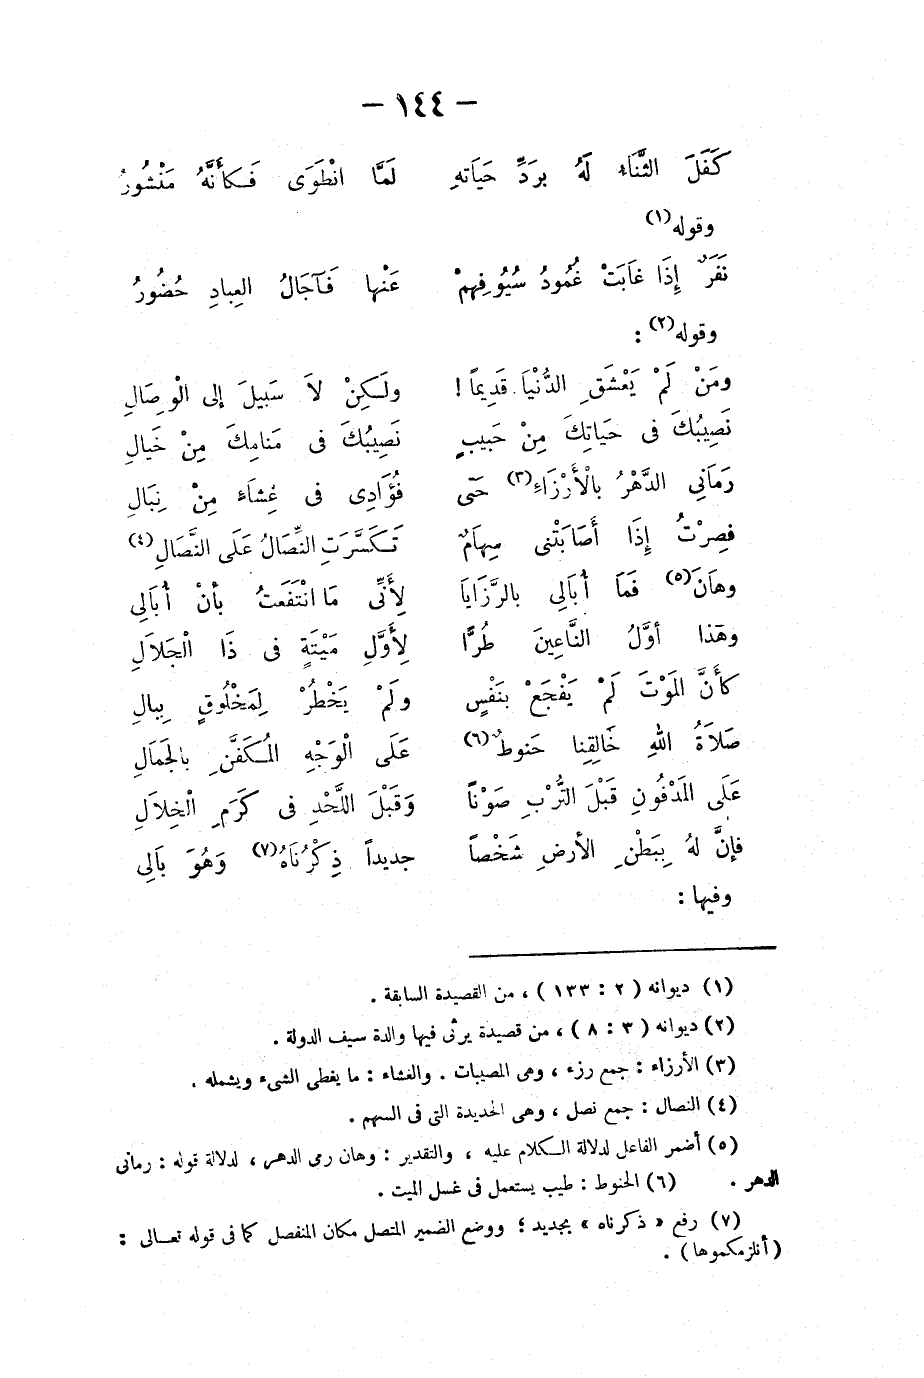 – ١٤٤ –
كَفَلَ الثَّنَاءُ لَهُ بِرَدِّ حَيَاتهِ لَمَّا انْطَوَى فَكَأَنَّهُ مَنْشُورُ
وقوله(١)
نَفَرٌ إِذَا غَابَتْ غُمُودُ سُيُوفِهِمْ عَنْها فَآجَالُ العِبادِ حُضُورُ
وقوله(٢) :
ومَنْ لَمْ يَعْشَقِ الدُّنْيَا قَدِيماً ! ولَكِنْ لاَ سَبِيلَ إلى الْوِصَالِ
نَصِيبُكَ فى حَياتِكَ مِنْ حَبيبٍ نَصِيبُكَ فى مَنامِكَ مِنْ خَيالِ
رَمَانِى الدَّهْرُ بالْأَرْزَاءِ(٣) حَتّى فُؤَادِى فى غِشاَءٍ مِنْ نِبَالِ
فصِرْتُ إِذَا أَصَابَتْنى سِهامٌ تَكَسَّرَتِ النِّصَالُ عَلَى النِّصَالِ(٤)
وهاَنَ(٥) فَمَا أُبَالِى بالرَّزَايَا لِأَنِّى مَا انْتَفَعتُ بأنْ أُبَالِى
وهَذا أوَّلُ النَّاعِينَ طُرًّا لِأَوَّلِ مَيْتَةٍ فى ذَا الْجَلاَلِ
كأَنَّ المَوْتَ لَمْ يَفْجَعْ بنَفْسٍ ولَمْ يَخْطُرْ لِمَخْلُوقٍ بِبالِ
صَلاَةُ اللهِ خَالِقِنا حَنوطٌ(٦) عَلَى الْوَجْهِ المُكَفَّنِ بالجَمَالِ
عَلَى المَدْفُونِ قَبْلَ التُّرْبِ صَوْناً وَقبْلَ اللَّحْدِ فى كَرَمِ الْخِلاَلِ
فإنَّ لهُ بِبَطْنِ الأرضِ شَخْصاً جديداً ذِكْرُنَاهُ(٧) وَهُوَ بَالِى
وفيها :
(١) ديوانه ( ٢ : ١٣٣ ) ، من القصيدة السابقة .
(٢) ديوانه ( ٣ : ٨ ) ، من قصيدة يرثى فيها والدة سيف الدولة .
(٣) الأرزاء : جمع رزء ، وهى المصيبات . والغشاء : ما يغطى الشىء ويشمله .
(٤) النصال : جمع نصل ، وهى الحديدة التى فى السهم .
(٥) أضمر الفاعل لدلالة الكلام عليه ، والتقدير : وهان رمى الدهر ، لدلالة قوله : رمانى
الدهر . (٦) الحنوط : طيب يستعمل فى غسل الميت .
(٧) رفع « ذكرناه » بجديد ؛ ووضع الضمير المتصل مكان المنفصل كما فى قوله تعالى :
( أنلزمكموها ) .